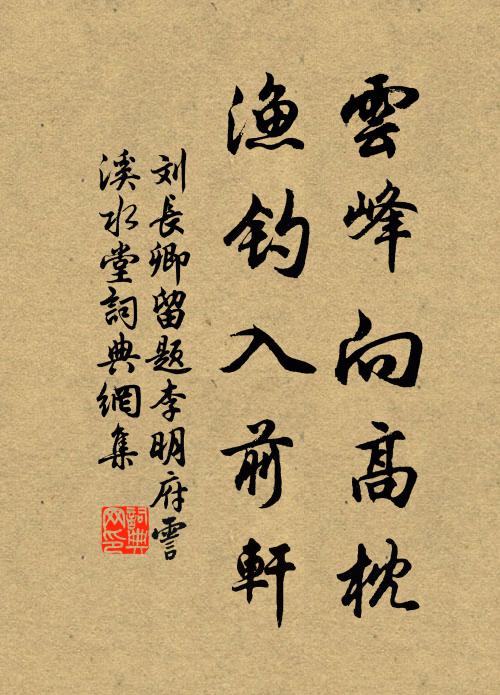 雲峰向高枕
漁钓入前軒
刘長卿留題李明府霅
溪水堂詞典網集
詞典
网印